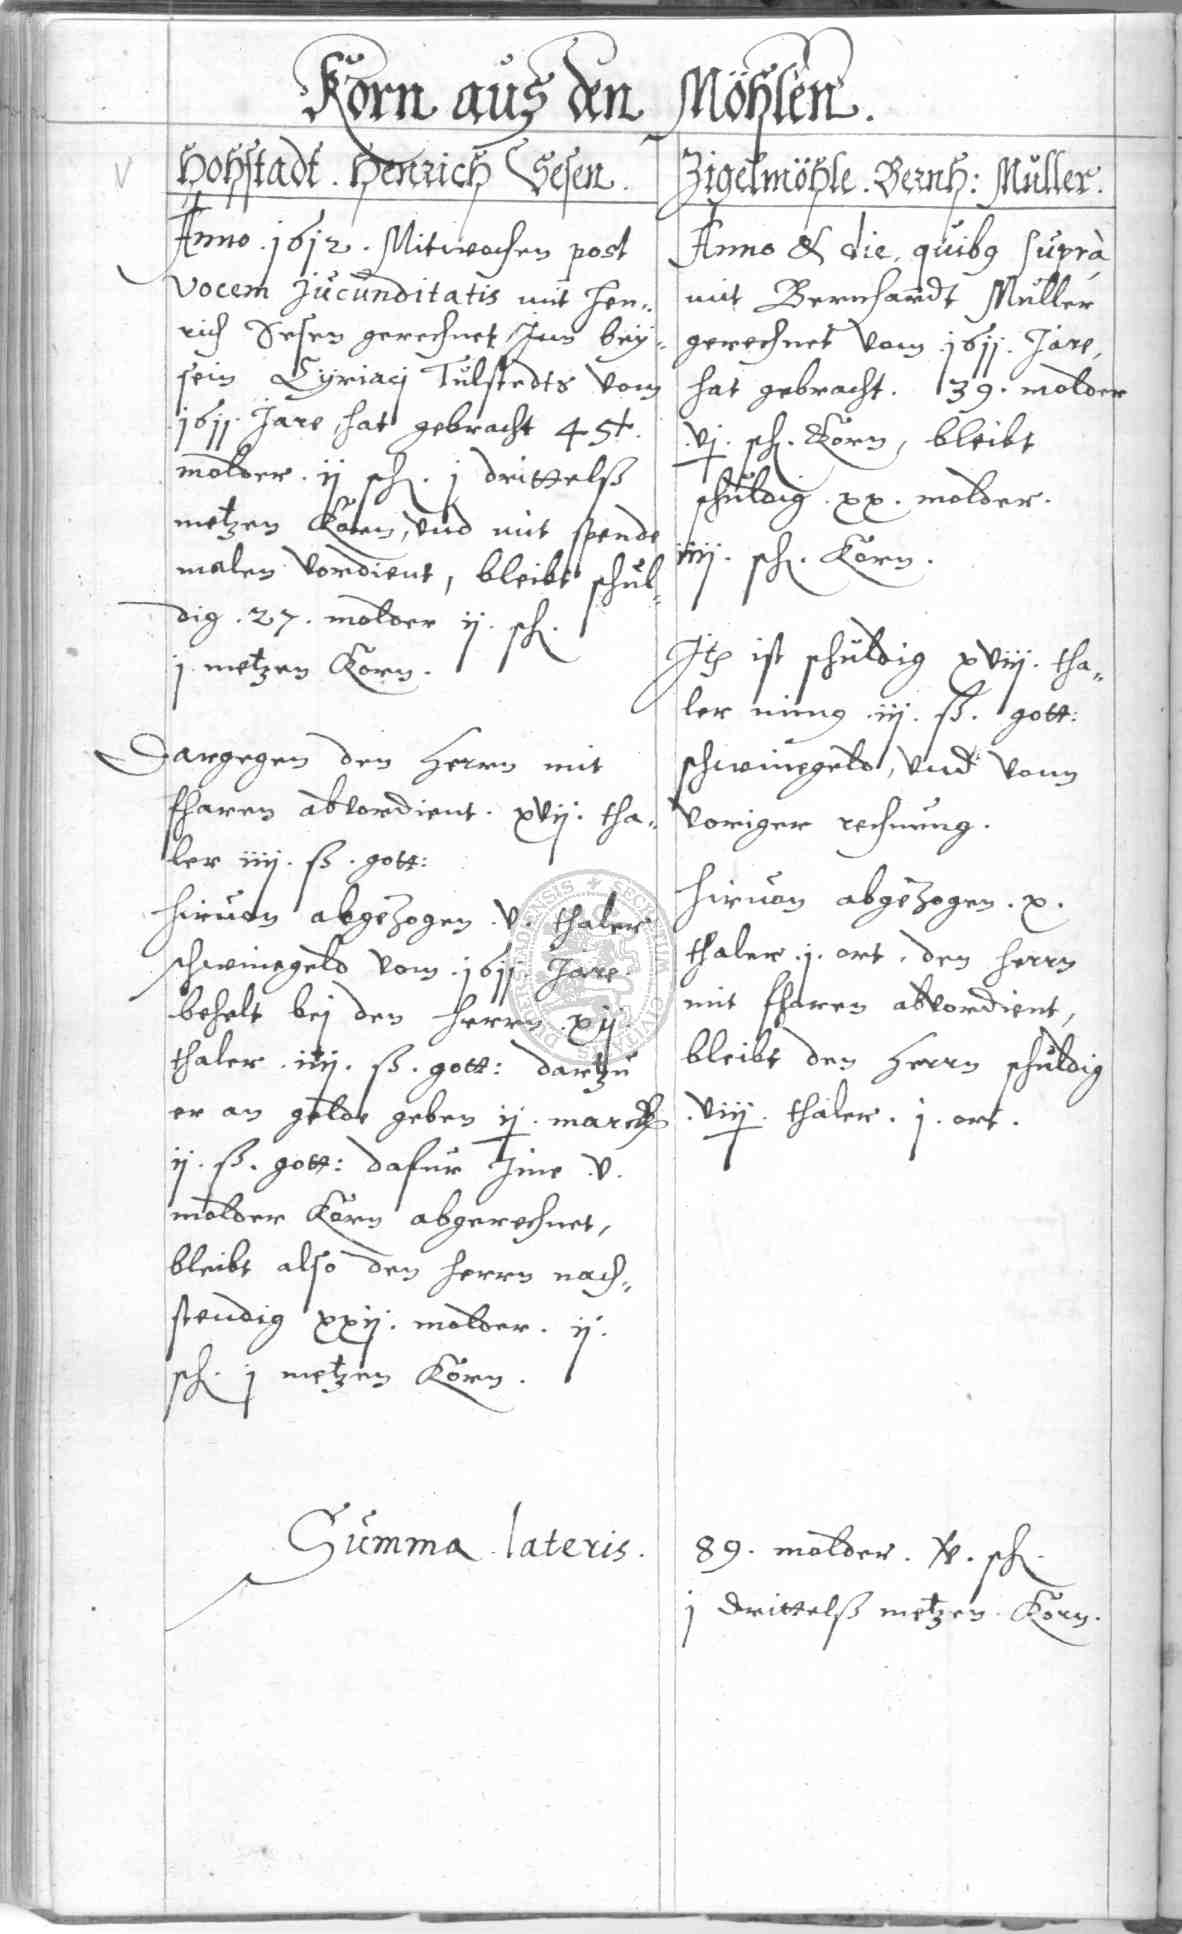 Korn aus den Möhlen.
Hohstadt. Henrich Sesen.
Anno. 1612. Mitwochen post
Vocem Jucunditatis mit Hen-
rich Sesen gerechnet, Inn bey-
sein Cyriacj Tulstedts vom
1611. Jare, hat gebracht 45½.
molder. ij sch. j drittelß
metzen Korn, vnd mit spende
malen vordient, bleibt schul-
dig. 27. molder ij. sch.
j metzen Korn.
Dargegen den Herrn mit
fharen abvordient. xvij. tha-
ler iiij. ß. gott:
hiruon abgezogen. v. thaler
schweinegeld vom. 1611. Jare.
behelt bej den herrn. xij.
thaler. iiij. ß. gott: dartzu
er an gelde geben ij. marck
ij. ß. gott: dafur Jme. v.
molder Korn abgerechnet,
bleibt also den herrn nach-
stendig xxij. molder. ij.
sch. j metzen Korn.
Zigelmöhle. Bernh: Müller.
Anno & die, quibg suprà
mit Bernhardt Müller
gerechnet vom 1611. Jare,
hat gebracht. 39. molder
vj. sch. Korn, bleibt
schuldig. xx. molder.
iiij. sch. Korn.
Jtem ist schuldig xviij. tha-
ler ming. iij. ß. gott:
schweinegeld, vnd vonn
voriger rechnung.
hiruon abgezogen. x.
thaler. j. ort. den herrn
mit fharen abvordient,
bleibt den Herrn schuldig
viij. thaler. j. ort.
Summa lateris.
89. molder. v. sch.
j drittelß metzen Korn.
SECRETUM CIVITATIS DUDERSTADENSIS